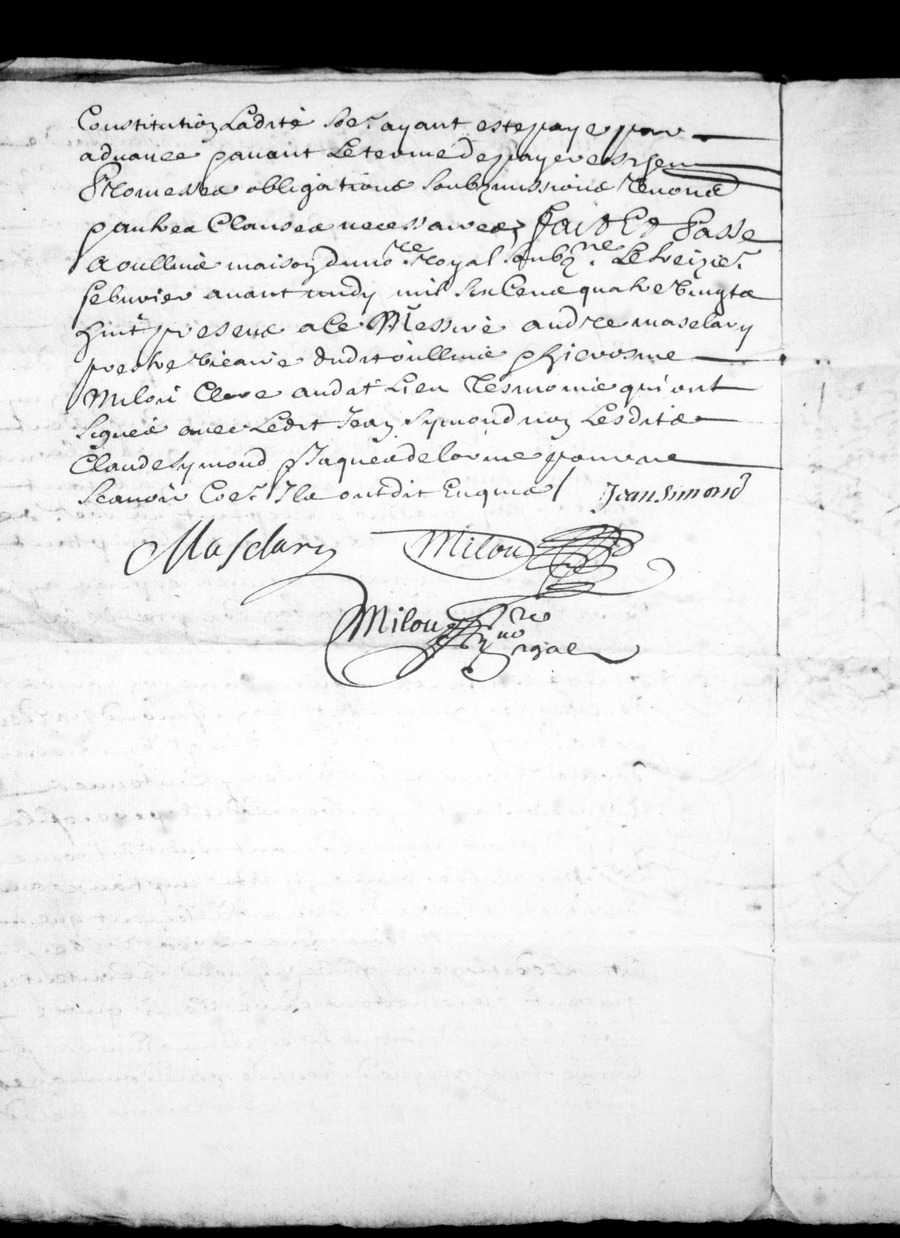 Constitution Ladite so.e ayant este paye par
advance & avant Le terme de payer escheu
Promesses obligations soubzmissions Renons
& autres Clauses necessaires, Fait Et Passe
a oullins maison du no.re Royal soubz.ne Le treizie.e
febvrier avant midy mil six Cens quatre vingts
huit presens a Ce Messire andre masclary
prestre vicaire dudit oullins & hierosme
Milou Clerc audit Lieu Tesmoins qui ont
signés avec Ledit Jean Symond non Lesdits
Claude Symond & Jaques delorme pour ne
scavoir Co.e Ils ont dit Enquis / Jean Simond
Masclary Milou
Milou
no.re royal